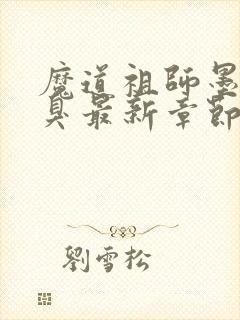 魔道祖師墨
臭最新章節
劉雪松